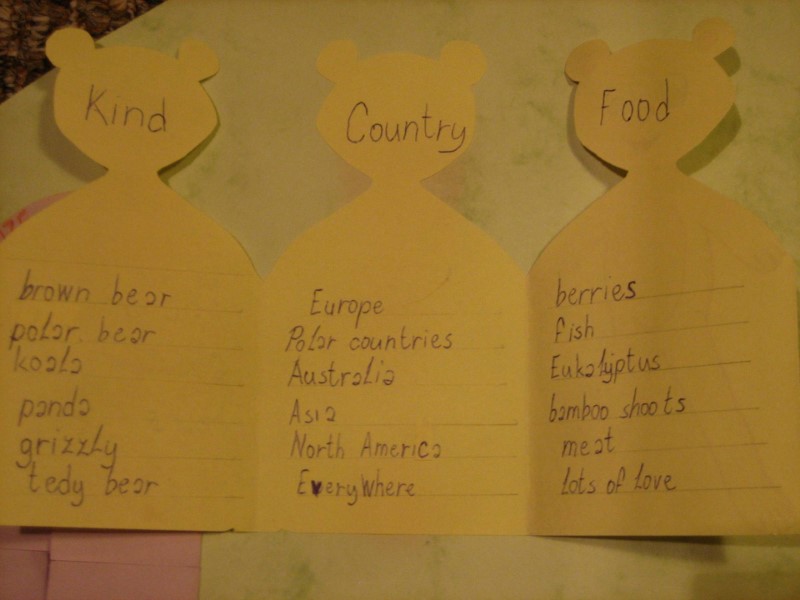 Kind
brown bear
polar bear
koala
panda
grizzly
tedy bear
Country
Europe
Polar countries
Australia
Asia
North America
EveryWhere
Food
berries
fish
Eukalyptus
bamboo shoots
meat
lots of love